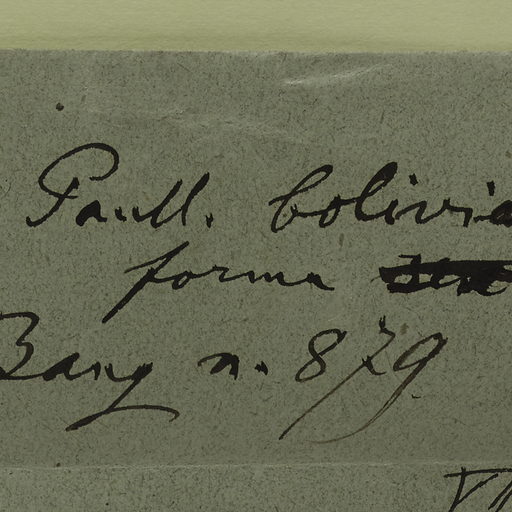 Paull. bolivia
forma
Bang n. 879